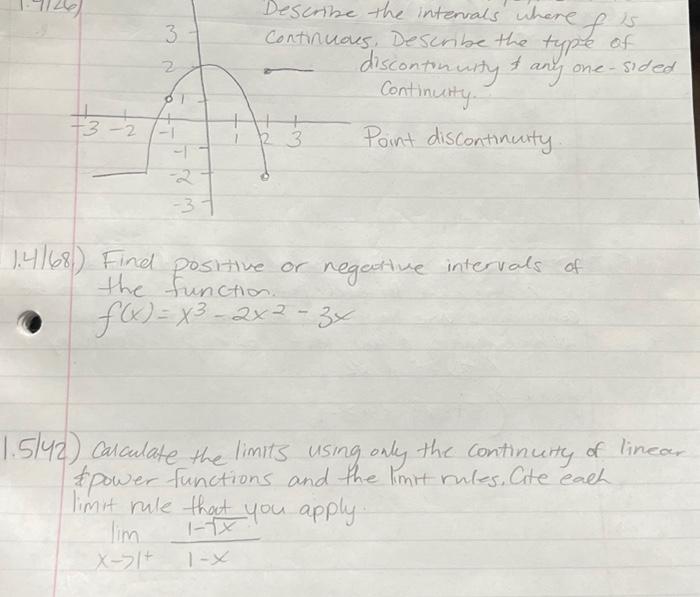 1.4/26)
Describe the intervals where f is
continuous. Describe the type of
discontinuity & any one-sided
continuity.
3
2
1
-3 -2 -1 1 2 3
-1
-2
-3
Point discontinuity.
1.4/68) Find positive or negative intervals of
the function.
f(x) = x³ - 2x² - 3x
1.5/42) Calculate the limits using only the continuity of linear
& power functions and the limit rules. Cite each
limit rule that you apply.
lim 1-√x
x->1+ 1-x